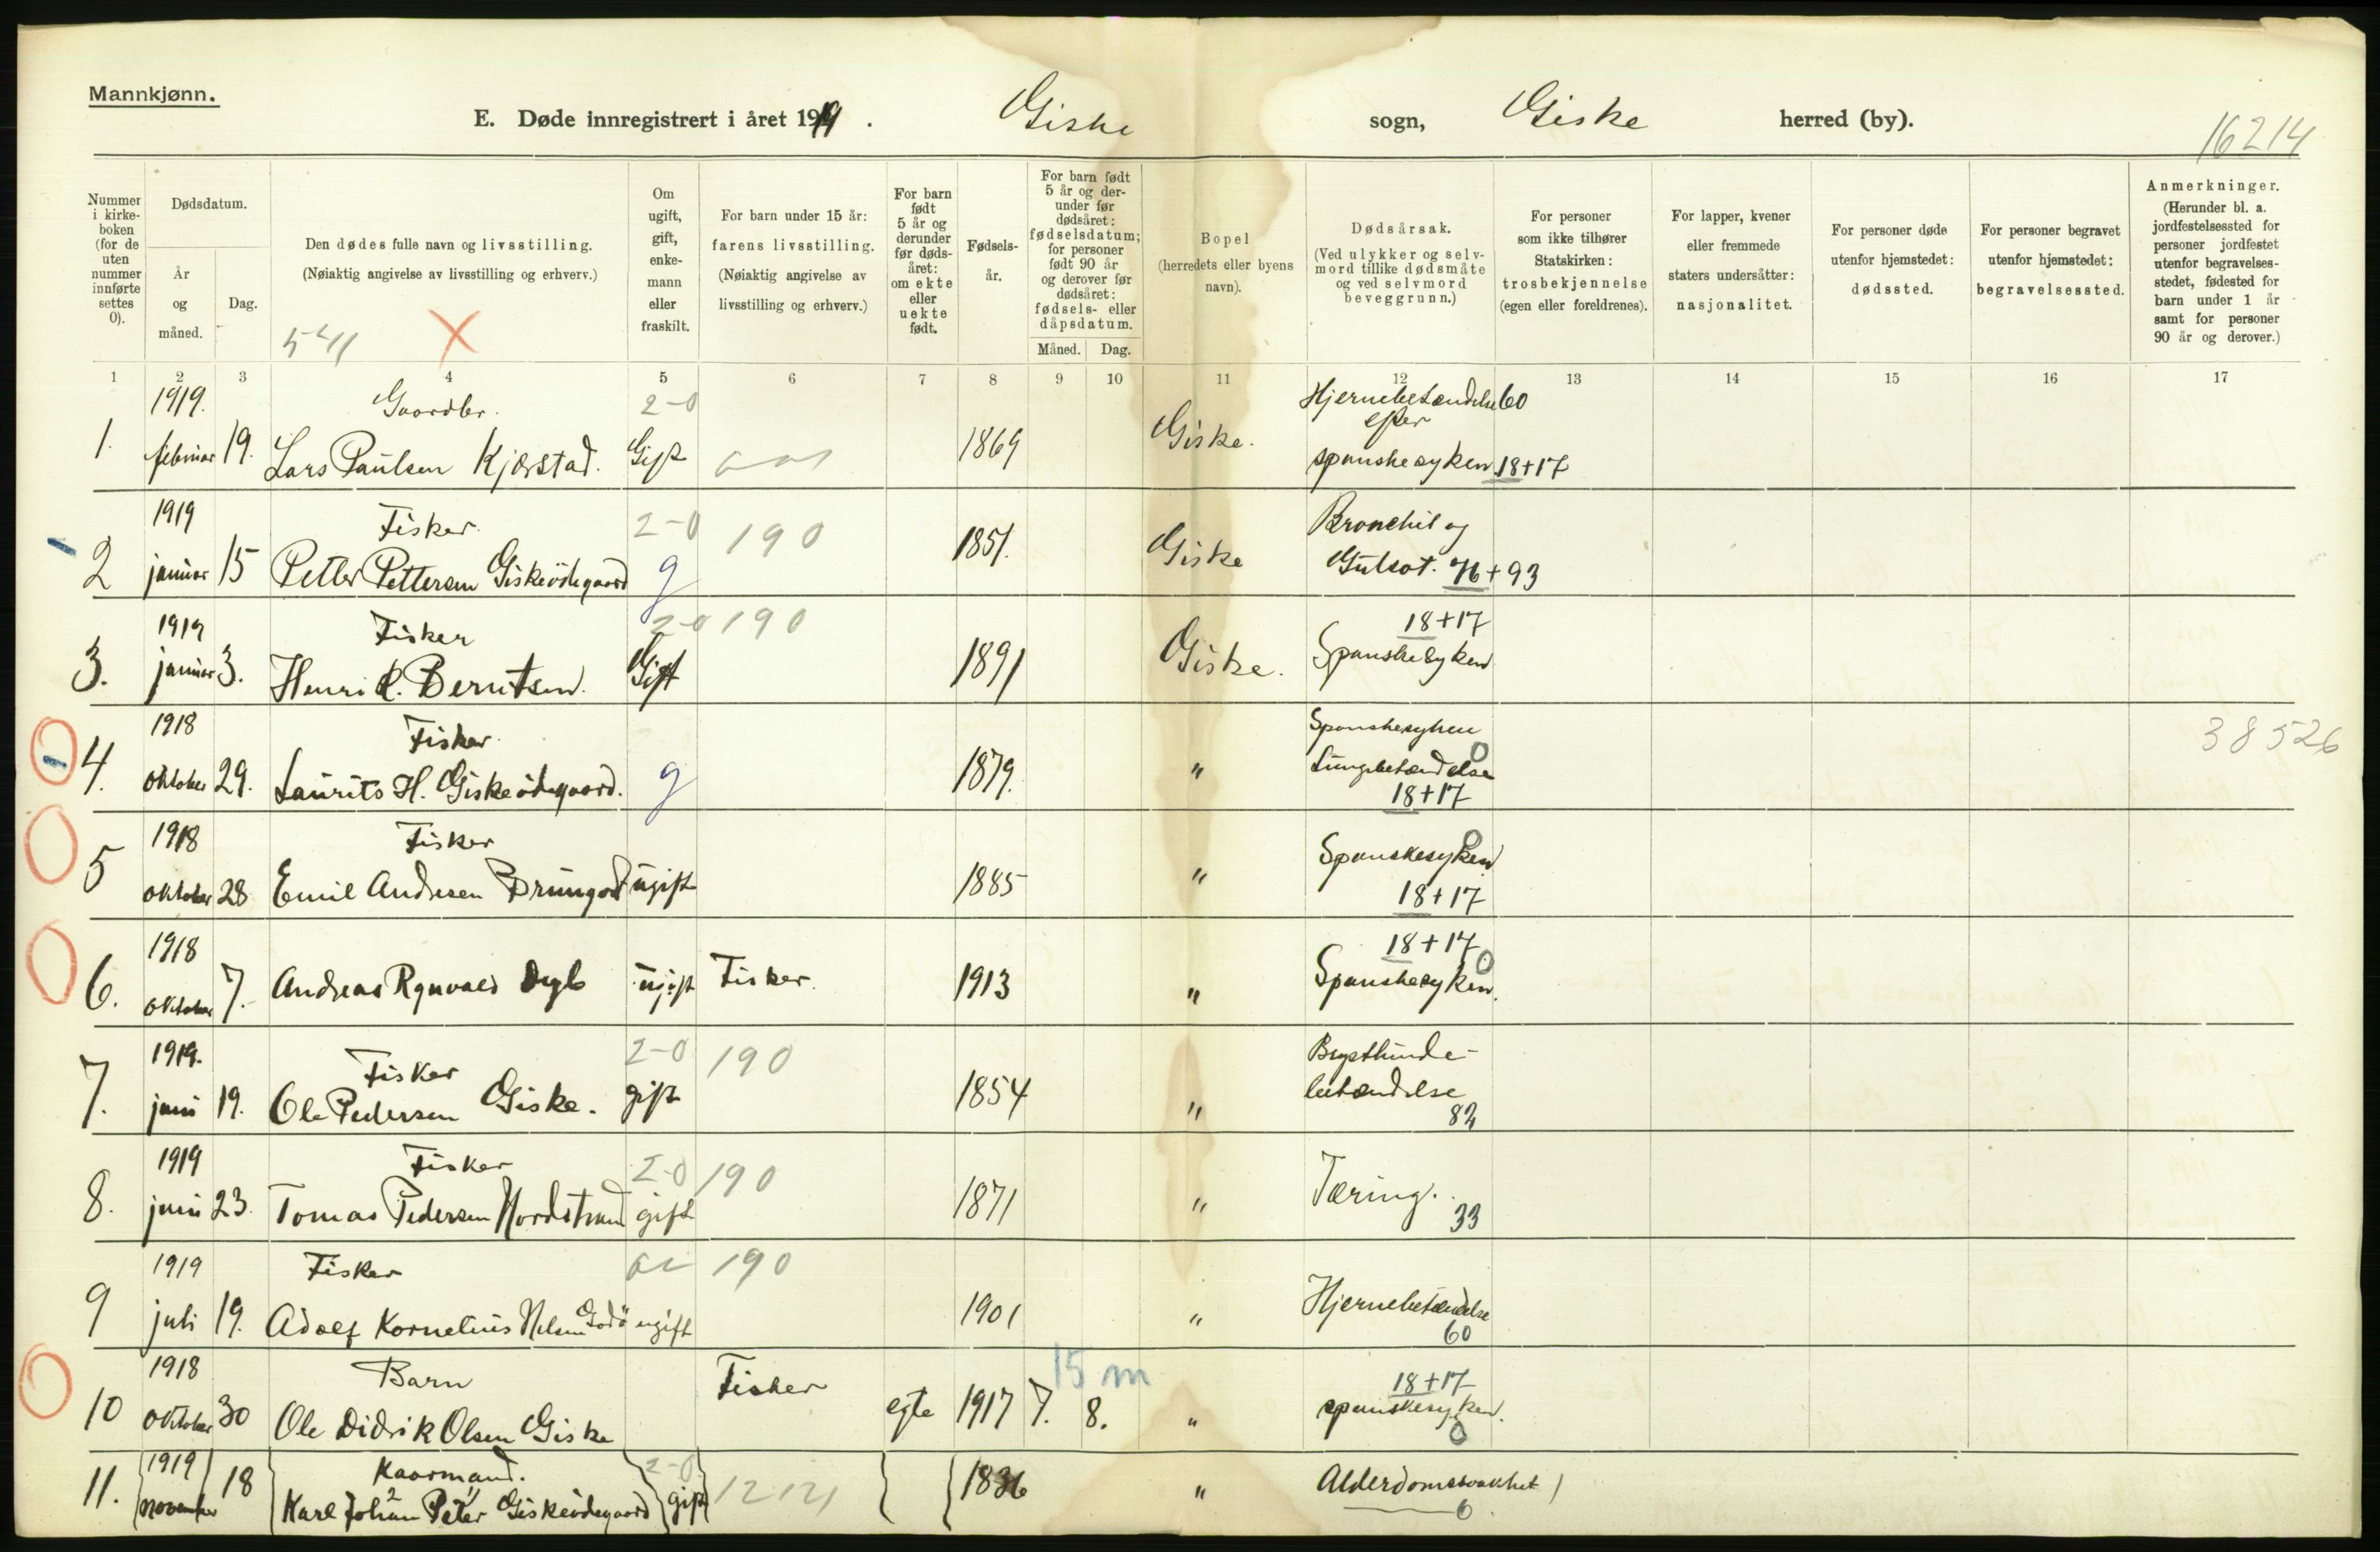 Mannkjønn.
E. Døde innregistrert i året 1919. Giske sogn, Giske herred (by).
16214
Nummer i kirke-boken (for de uten nummer innførte settes 0).
Dødsdatum.
År og måned.
Dag.
Den dødes fulle navn og livsstilling.
(Nøiaktig angivelse av livsstilling og erhverv.)
Om ugift, gift, enke-mann eller fraskilt.
For barn under 15 år: farens livsstilling.
(Nøiaktig angivelse av livsstilling og erhverv.)
For barn født 5 år og derunder før døds-året: om ekte eller uekte født.
Fødsels-år.
For barn født 5 år og der-under før dødsåret: fødselsdatum; for personer født 90 år og derover før dødsåret: fødsels- eller dåpsdatum.
Måned. Dag.
Bopel (herredets eller byens navn).
Dødsårsak.
(Ved ulykker og selv-mord tillike dødsmåte og ved selvmord beveggrunn.)
For personer som ikke tilhører Statskirken: trosbekjennelse (egen eller foreldrenes).
For lapper, kvener eller fremmede staters undersåtter: nasjonalitet.
For personer døde utenfor hjemstedet: dødssted.
For personer begravet utenfor hjemstedet: begravelsessted.
Anmerkninger.
(Herunder bl. a. jordfestelsessted for personer jordfestet utenfor begravelses-stedet, fødested for barn under 1 år samt for personer 90 år og derover.)
1 2 3 4 5 6 7 8 9 10 11 12 13 14 15 16 17
1919. Gaardbr. 2-0 Hjernebetændelse 60
efter
1. februar 19. Lars Paulsen Kjærstad. Gift 1869 Giske. spanskesyken 18+17
1919 Fisker. 2-0 190 Bronchit og
2 januar 15 Petter Pettersen Giskeødegaard g 1851. Giske Gulsot. 76+93
1919 Fisker 2-0 190 18+17
3. januar 3. Henrik. Berntsen. Gift 1891 Giske. Spanskesyken
1918 Fisker. Spanskesyken 38526
4. oktober 29. Laurits H. Giskeødegaard. g 1879. " Lungebetændelse 0
18+17
1918 Fisker Spanskesyken 0
5 oktober 28 Emil Andresen ugift 1885 " 18+17
1918 18+17
6. oktober 7. Andreas ugift Fisker. 1913 " Spanskesyken. 0
1919. Fisker 2-0 190 Brysthinde-
7. juni 19. Ole Pedersen Giske. gift 1854 " betændelse
82
1919 Fisker 2-0 190 Tæring.
8. juni 23. Tomas Pedersen Nordstrand gift 1871 " 33
1919 Fisker 190 Hjernebetændelse
9 juli 19. Adolf Kornelius Nilsen Godø ugift 1901 " 60
1918 Barn Fisker 15 m 18+17
10 oktober 30 Ole Didrik Olsen Giske egte 1917 7. 8. " spanskesyken.
0
1919 Kaarmand. 2-0
11. november 18 Karl Johan Peter Giskeødegaard gift 1836 " Alderdomssvakhet
6